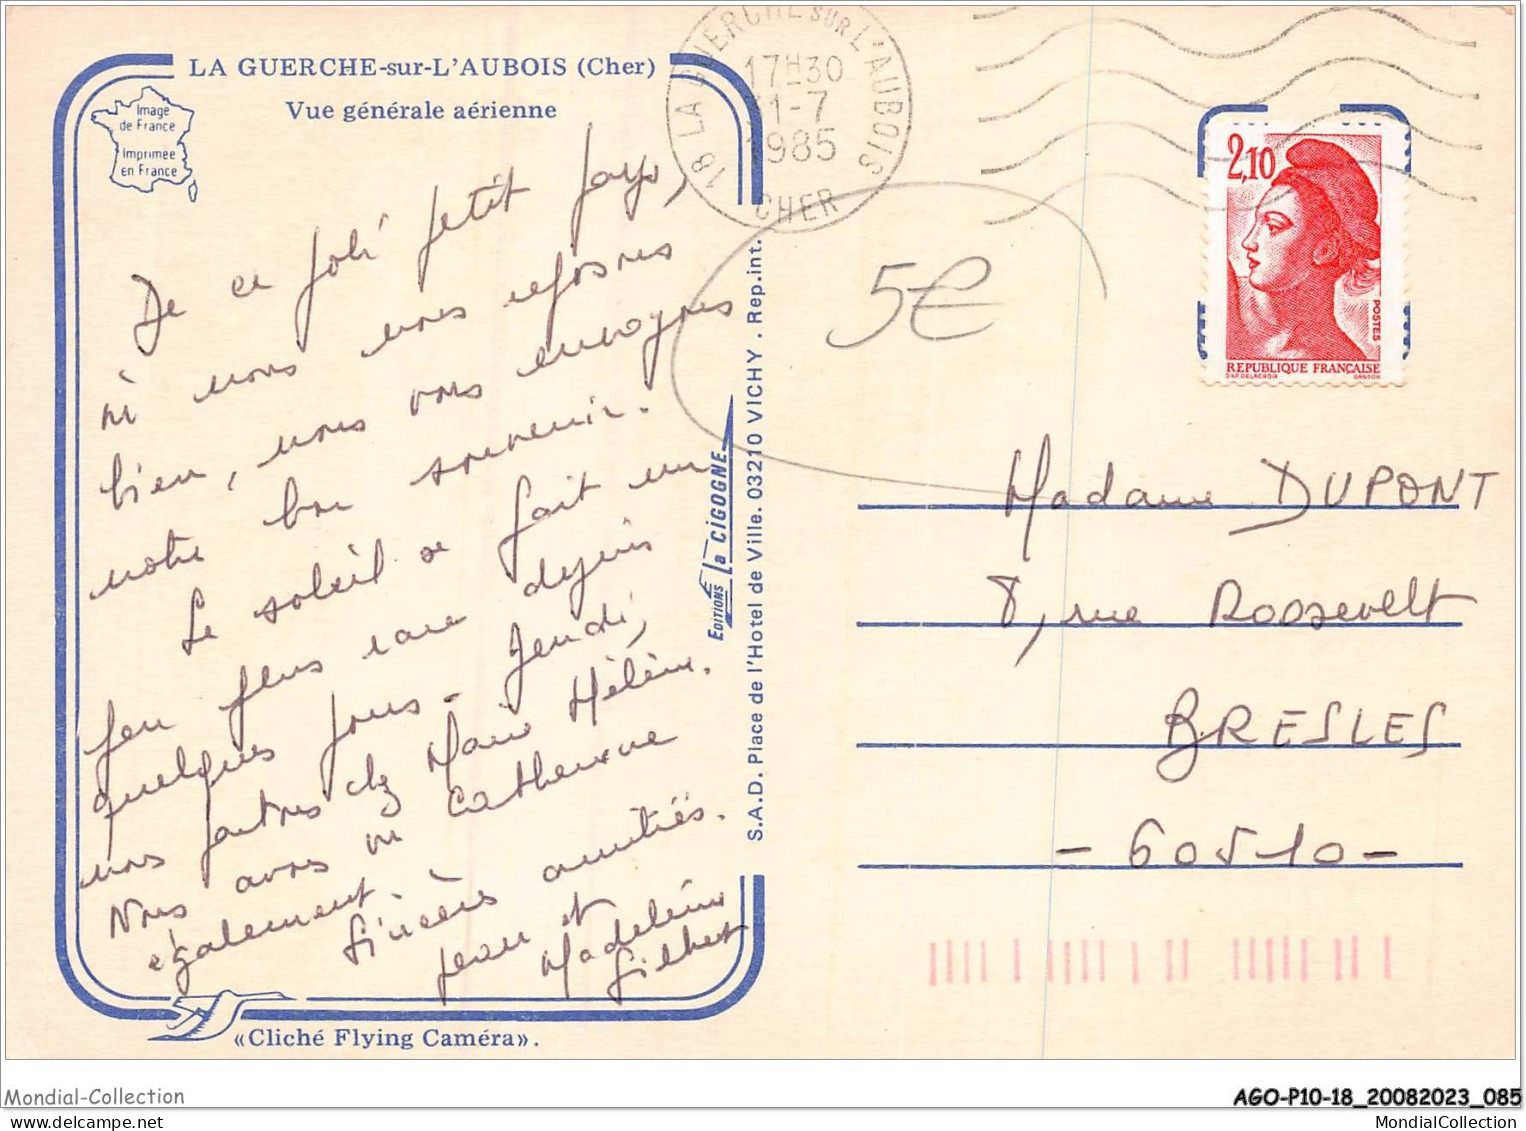 LA GUERCHE-sur-L'AUBOIS (Cher)
Vue générale aérienne
Image
de France
Imprimée
en France
De ce joli petit pays,
où nous nous reposons
bien, nous vous envoyons
notre bon souvenir.
Le soleil se fait un
peu plus rare depuis
quelques jours. Jeudi,
nous partons chez Marie Hélène.
Nous avons vu Catherine
également.
Sincères amitiés.
Jean et
Madeleine
Gilbert
«Cliché Flying Caméra».
EDITIONS La CIGOGNE
S.A.D. Place de l'Hotel de Ville. 03210 VICHY . Rep.int.
18 LA GUERCHE SUR L'AUBOIS
17H30
1-7
1985
CHER
5€
2,10
POSTES
REPUBLIQUE FRANÇAISE
D'AP. DELACROIX GANDON
Madame DUPONT
8, rue Roosevelt
BRESLES
- 60510 -
Mondial-Collection
AGO-P10-18_20082023_085
MondialCollection
MondialCollection